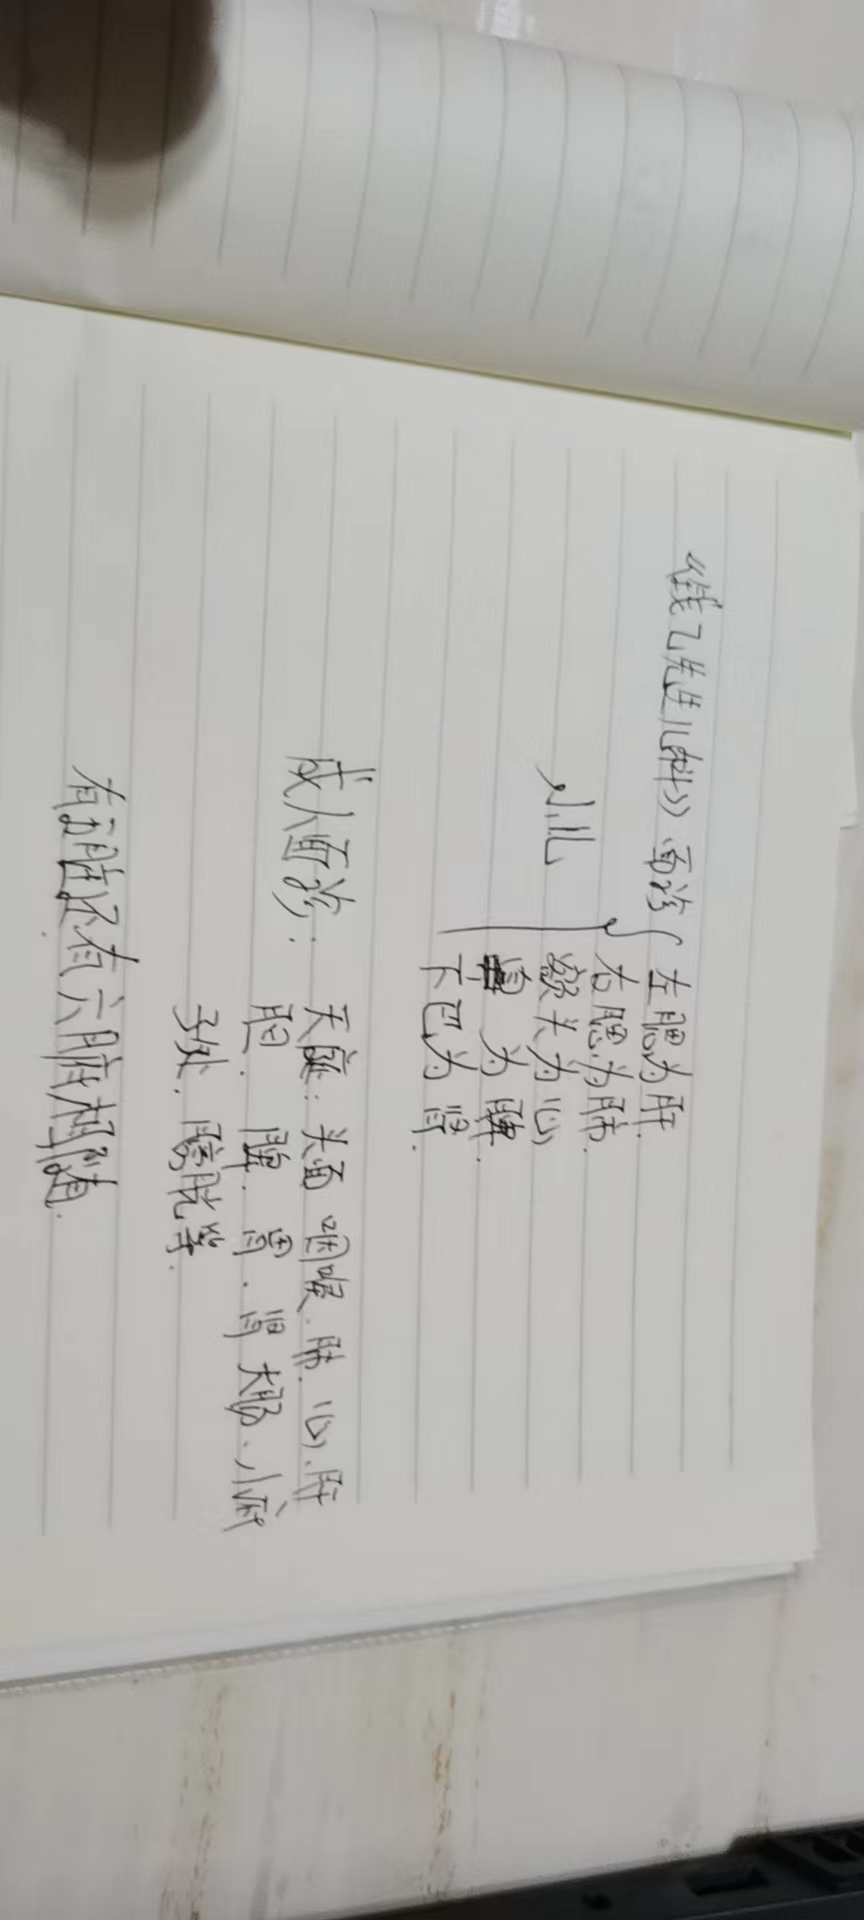 《钱乙先生儿科》面诊
小儿
左腮为肝
右腮为肺.
额头为心
鼻为脾.
下巴为肾.
成人面诊:
天庭:头面 咽喉.肺.心.肝
胆.脾.胃.肾 大肠.小肠
子处.膀胱等.
有五脏还有六腑相随.